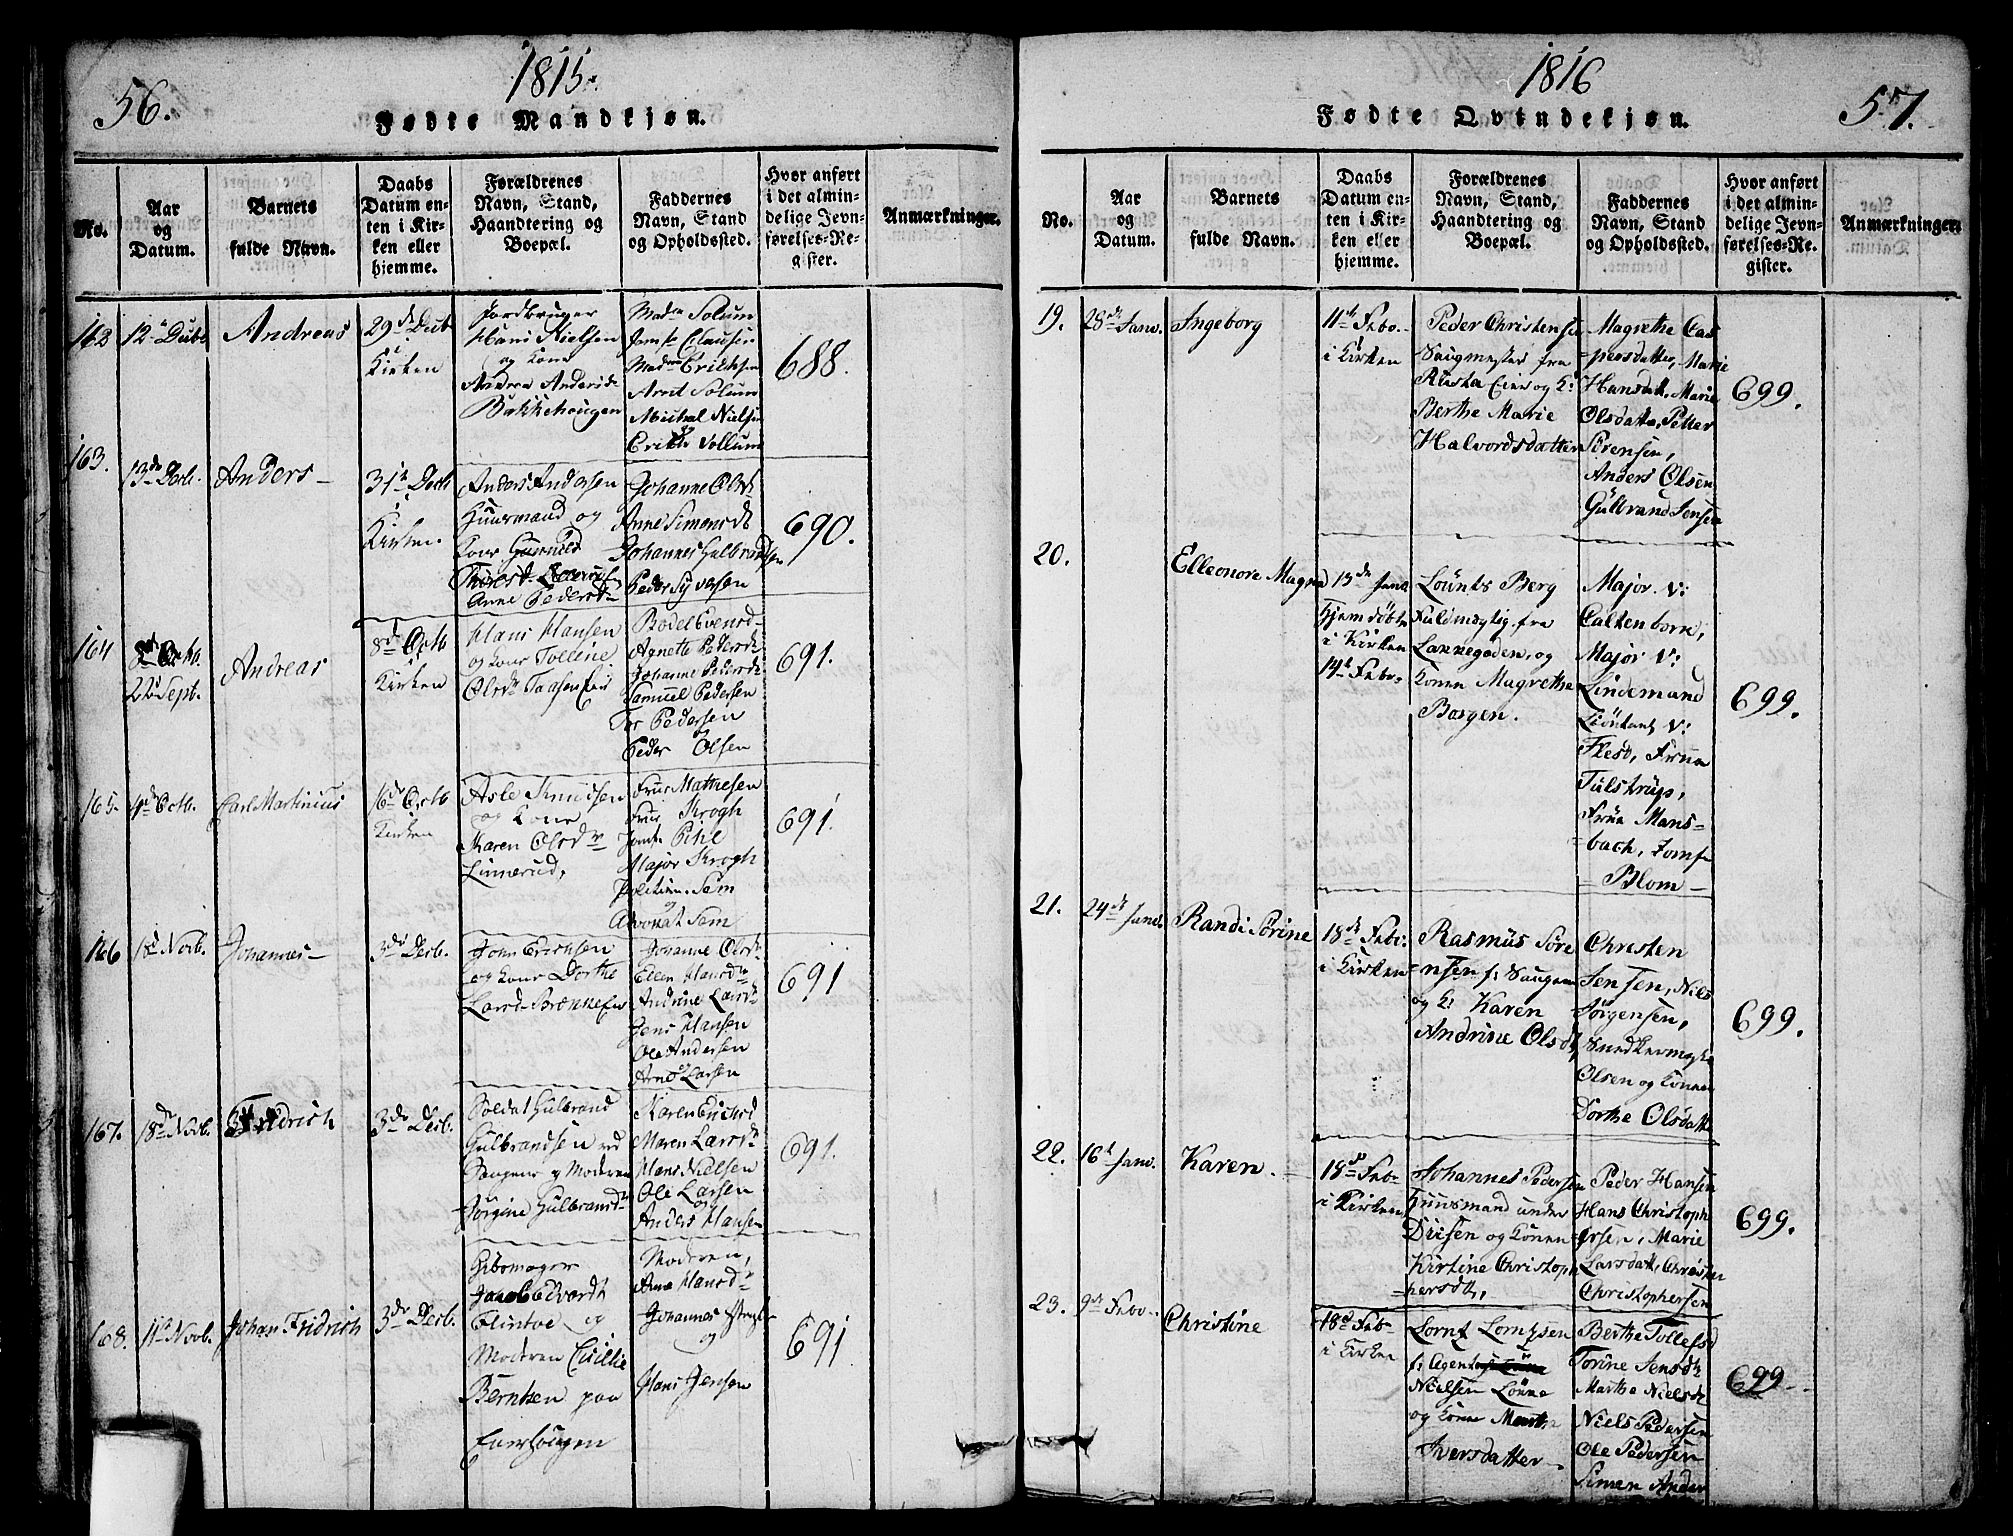 56.
1815.
Fødte Mandkjøn.
No.
Aar
og
Datum.
Barnets
fulde Navn.
Daabs
Datum en-
ten i Kir-
ken eller
hjemme.
Forældrenes
Navn, Stand,
Haandtering og
Boepæl.
Faddernes
Navn, Stand
og Opholdssted.
Hvor anført
i det almin-
delige Jevn-
førelses-Re-
gister.
Anmærkninger.
162
Andreas
Kirken
Jordbruger
Hans Nielsen
og Kone
Bakkehougen
Mad. Solum
Clausen
Mad. Erichsen
Arnt Solum
Michal Nielsen
Vollum
688.
163.
13de Decb.
Anders
31te Decb
i
Kirken.
Anders Andersen
Huusmand og
Kone
Anne Pedersd
Johanne Olsd
Anne Simonsd
Johannes Gulbrandsen
Peder Syversen
690.
164
22de Sept.
Andreas
8de Octb
i
Kirken
Hans Hansen
og Kone
Olsd
Bodel Evensd
Agnette Pedersd
Johanne Pedersd
Samuel Pedersen
Pedersen
og
Peder Olsen
691.
165.
4de Octb.
Carl Martinius
16de Octb
Kirken
Asle Knudsen
og Kone
Karen Olsd
Linnerud,
Frue Mathiesen
Frue Krogh
Jomf. Pihl
Major Krogh
Sam
og
Sam
691.
166
Novb.
Johannes
3de Decb.
John Erichsen
og Kone Dorthe
Larsd
Johanne Olsd
Ellen Hansd
Andrine Larsd
Jens Hansen
Ole Andersen
Larsen
691
167.
18de Novb.
Fridrich
3de Decb.
Soldat Gulbrand
Gulbrandsen ved
Saugene og Moderen
Jørgine Gulbrandsd
Karen Erichsd
Maren Larsd
Hans Nielsen
Ole Larsen
og
Anders Hansen
691.
168.
11te Novb.
Johan Fridrich
3de Decb.
Gibsmager
Jacob Edvardt
Flintoe og
Moderen Cicillie
Berntsen paa
Enerhougen
Moderen,
Anne Hansd
Johannes
og
Hans Jensen
691
1816
57.
Fødte Qvindekjøn.
No.
Aar
og
Datum.
Barnets
fulde Navn.
Daabs
Datum en-
ten i Kir-
ken eller
hjemme.
Forældrenes
Navn, Stand,
Haandtering og
Boepæl.
Faddernes
Navn, Stand
og Opholdssted.
Hvor anført
i det almin-
delige Jevn-
førelses-Re-
gister.
Anmærkninger.
19.
28de Janv.
Ingeborg
11te Febr.
i Kirken
Peder Christensen
Saugmester fra
og K:
Berthe Marie
Halvordsdatter
Magrethe Cas
persdatter, Marie
Hansdatt, Marie
Olsdatter, Petter
Sørensen,
Anders Olsen
Gulbrand Jensen
699.
20.
Elleonore Magrea
13de Janv
hjemdøbt
i Kirken
14de Febr.
Berg
Fuldmægtig fra
og
Konen Magrethe
Borgen.
Major v:
Caltenborn,
Major v:
Lindemand
v:
Flest, Frue
Tulstrup,
Frue Mans-
bach, Jomf
Blom
699.
21.
24de Janv.
Randi Sørine
18de Febr.
i Kirken
Rasmus Søre
nsen f: Saugene
og K: Karen
Andrine Olsd
Christen
Jensen, Niels
Jørgensen,
Snedkermager
Olsen og Konen
Dorthe Olsdatt
699.
22.
16de Janv.
Karen.
18de Feb.
i Kirken
Johannes Pedersen
Huusmand under
og Konen
Kirstine Christoph
hersdtr,
Peder Hansen
Hans Christoph
ersen, Marie
Larsdatt, Christen
Christophersen
699.
23.
9de Febr.
Christine
18de Feb.
i Kirken
Nielsen Lønne
og Konen
Iversdatter
Berthe Tollefsd
Torine Jensdt
Marthe Nielsdt
Niels Pedersen
Ole Pedersen
Simen Ander
699.